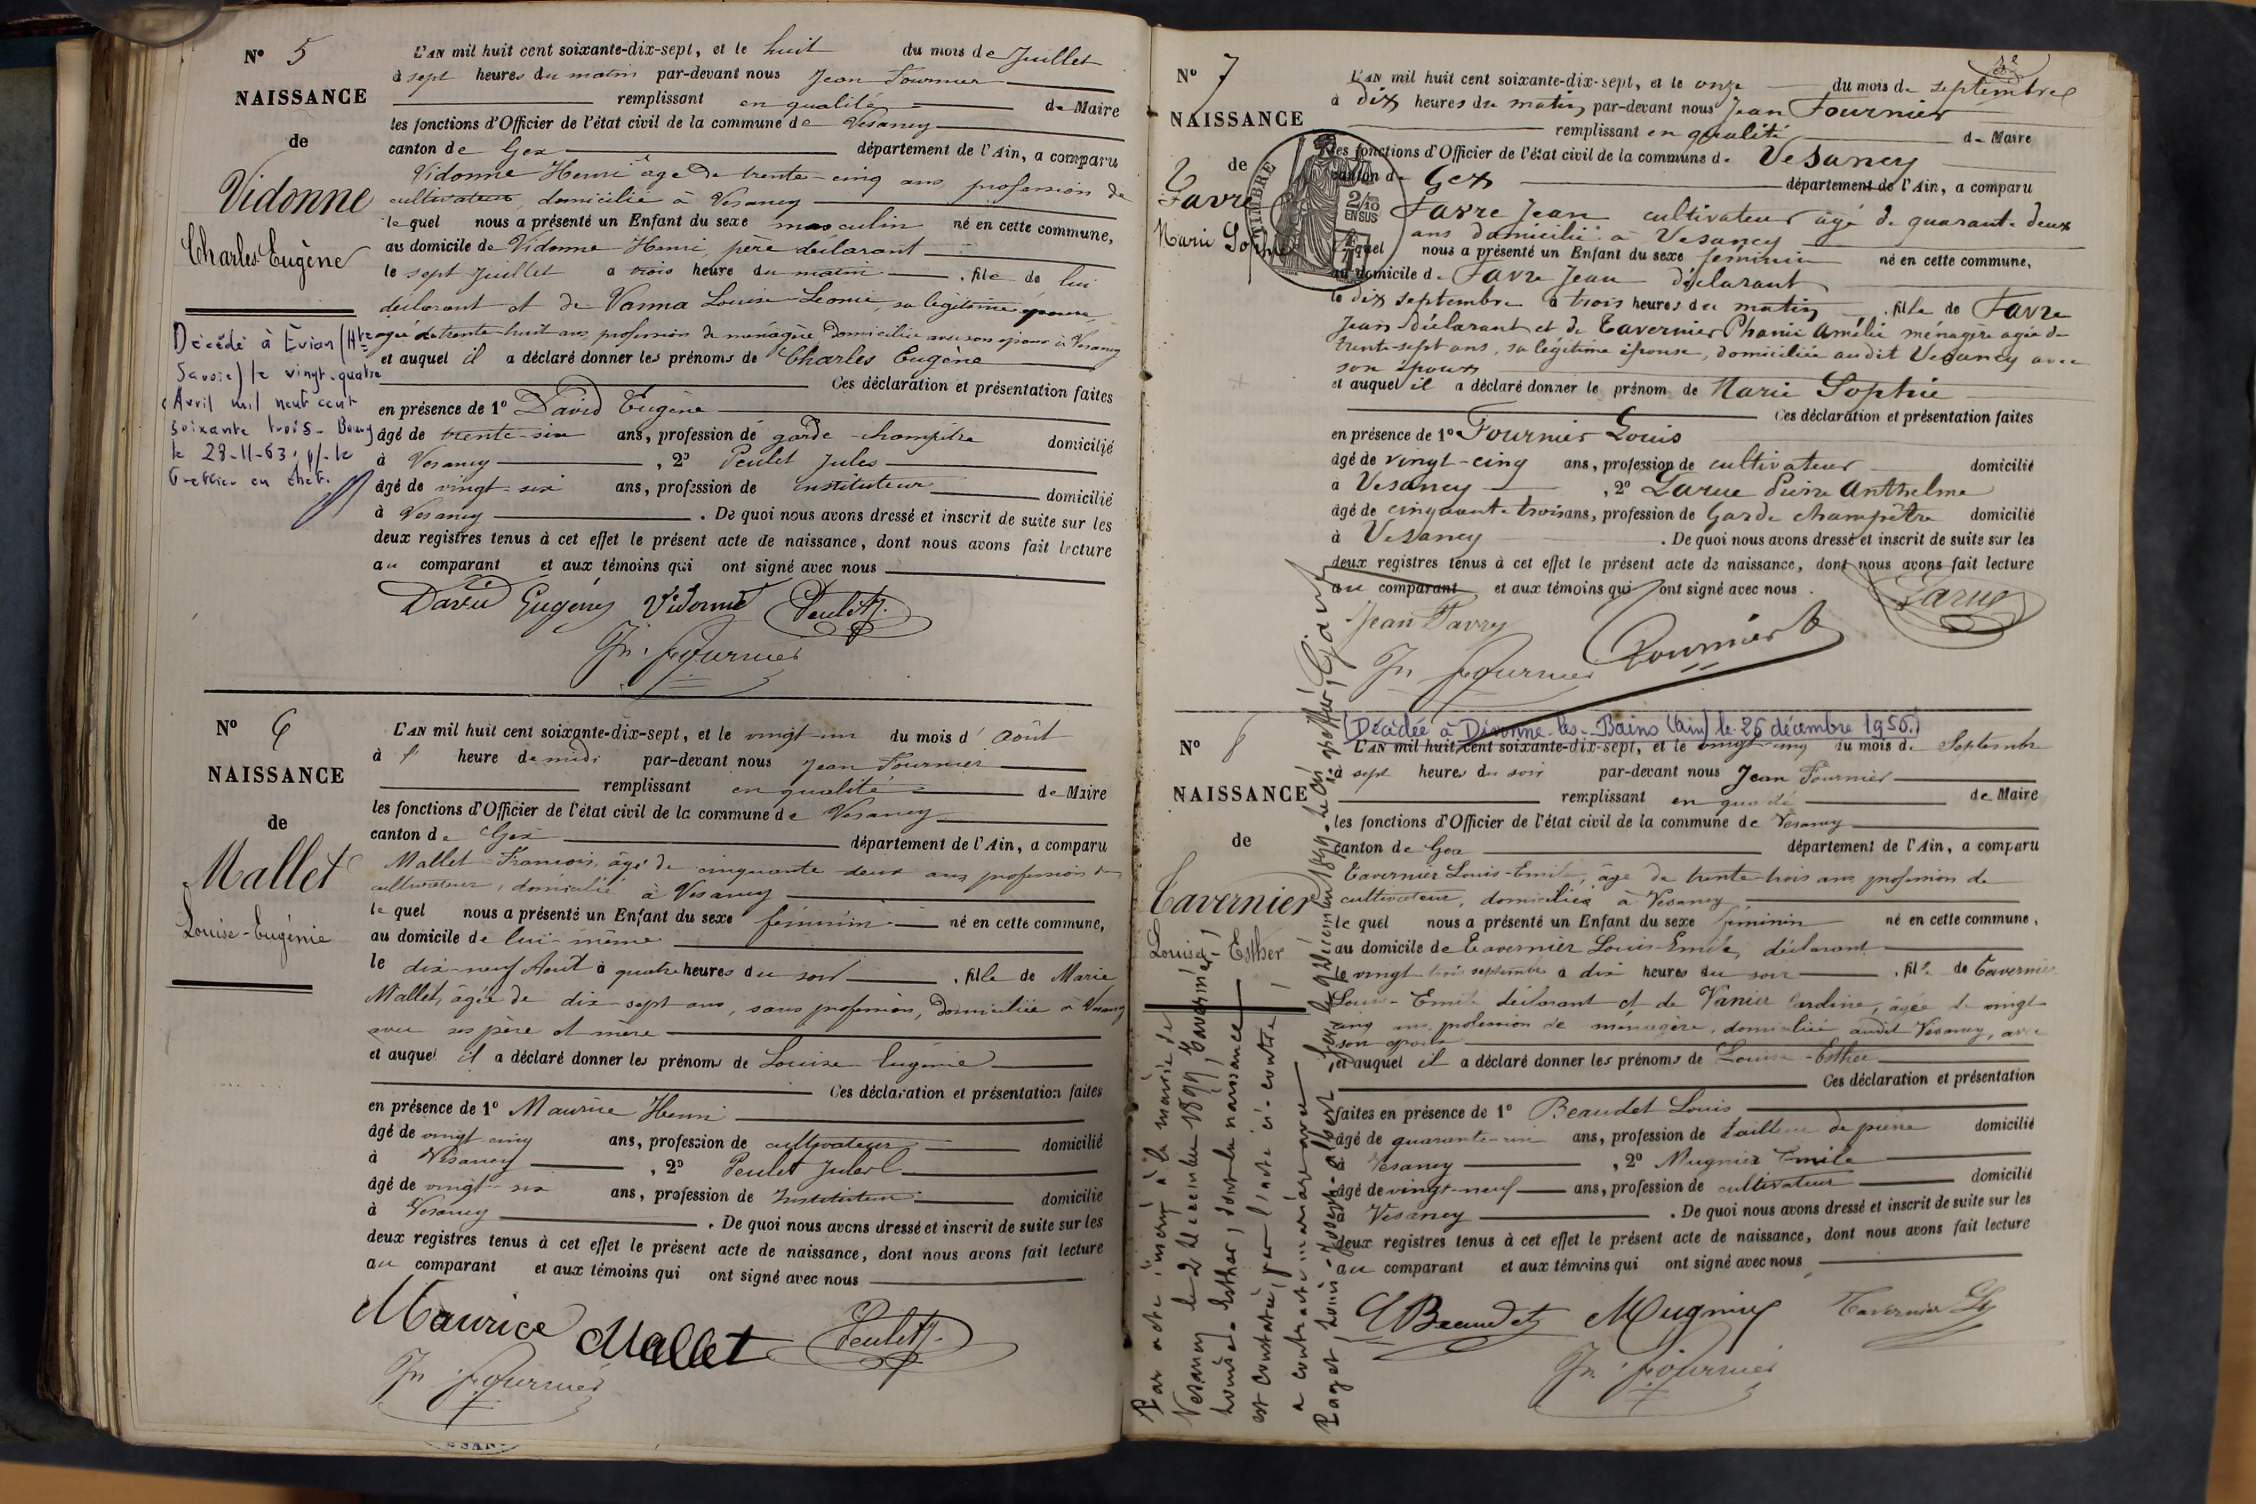 N° 5
NAISSANCE
de
Vidonne
Charles-Eugène
L'AN mil huit cent soixante-dix-sept, et le huit du mois de Juillet
à sept heures du matin par-devant nous Jean Fournier
remplissant en qualité de Maire
les fonctions d'Officier de l'état civil de la commune de Vesancy
canton de Gex département de l'Ain, a comparu
Vidonne Henri âgé de trente-cinq ans, profession de
cultivateur, domicilié à Vesancy
le quel nous a présenté un Enfant du sexe masculin né en cette commune,
au domicile de Vidonne Henri, père déclarant
le sept Juillet à trois heure du matin, fils de lui
déclarant et de Vanna Louise Léonie, sa légitime épouse,
âgée de trente-huit ans, profession de ménagère domiciliée avec son époux à Vesancy
et auquel il a déclaré donner les prénoms de Charles Eugène
Ces déclaration et présentation faites
en présence de 1° David Eugène
âgé de trente-six ans, profession de garde-champêtre domicilié
à Vesancy, 2° Peulet Jules
âgé de vingt-six ans, profession de instituteur domicilié
à Vesancy. De quoi nous avons dressé et inscrit de suite sur les
deux registres tenus à cet effet le présent acte de naissance, dont nous avons fait lecture
au comparant et aux témoins qui ont signé avec nous
David Eugène Vidonne Peulet J.
Jn. Fournier
Décédé à Évian (Hte
Savoie) le vingt-quatre
Avril mil neuf cent
soixante trois - Bourg
le 28-11-63. p/- le
Greffier en chef.
N° 6
NAISSANCE
de
Mallet
Louise-Eugénie
L'AN mil huit cent soixante-dix-sept, et le vingt-un du mois d'Août
à 1 heure de midi par-devant nous Jean Fournier
remplissant en qualité de Maire
les fonctions d'Officier de l'état civil de la commune de Vesancy
canton de Gex département de l'Ain, a comparu
Mallet François, âgé de cinquante deux ans, profession de
cultivateur, domicilié à Vesancy
le quel nous a présenté un Enfant du sexe féminin né en cette commune,
au domicile de lui-même
le dix-neuf Août à quatre heures du soir, fille de Marie
Mallet, âgée de dix-sept ans, sans profession, domiciliée à Vesancy
avec ses père et mère
et auquel il a déclaré donner les prénoms de Louise Eugénie
Ces déclaration et présentation faites
en présence de 1° Maurice Henri
âgé de vingt cinq ans, profession de cultivateur domicilié
à Vesancy, 2° Peulet Jules
âgé de vingt-six ans, profession de Instituteur domicilié
à Vesancy. De quoi nous avons dressé et inscrit de suite sur les
deux registres tenus à cet effet le présent acte de naissance, dont nous avons fait lecture
au comparant et aux témoins qui ont signé avec nous
Maurice Mallet Peulet J.
Jn. Fournier
N° 7
NAISSANCE
de
Favre
Marie Sophie
TIMBRE
2/10
EN SUS
L'AN mil huit cent soixante-dix-sept, et le onze du mois de septembre
à dix heures du matin, par-devant nous Jean Fournier
remplissant en qualité de Maire
les fonctions d'Officier de l'état civil de la commune de Vesancy
canton de Gex département de l'Ain, a comparu
Favre Jean cultivateur âgé de quarante deux
ans domicilié à Vesancy
lequel nous a présenté un Enfant du sexe féminin né en cette commune,
au domicile de Favre Jean déclarant
le dix septembre à trois heures du matin, fille de Favre
Jean déclarant et de Tavernier Phanie Amélie ménagère agée de
trente-sept ans, sa légitime épouse, domiciliée audit Vesancy avec
son époux
et auquel il a déclaré donner le prénom de Marie Sophie
Ces déclaration et présentation faites
en présence de 1° Fournier Louis
âgé de vingt-cinq ans, profession de cultivateur domicilié
à Vesancy, 2° Larue Pierre Anthelme
âgé de cinquante trois ans, profession de Garde champêtre domicilié
à Vesancy. De quoi nous avons dressé et inscrit de suite sur les
deux registres tenus à cet effet le présent acte de naissance, dont nous avons fait lecture
au comparant et aux témoins qui ont signé avec nous.
Larue
Jean Favre
Jn Fournier Fournier L
(Décédée à Divonne-les-Bains (Ain) le 26 décembre 1956.)
N° 8
NAISSANCE
de
Tavernier
Louise Esther
L'AN mil huit cent soixante-dix-sept, et le vingt-cinq du mois de Septembre
à sept heures du soir par-devant nous Jean Fournier
remplissant en qualité de Maire
les fonctions d'Officier de l'état civil de la commune de Vesancy
canton de Gex département de l'Ain, a comparu
Tavernier Louis-Emile, âgé de trente-trois ans, profession de
cultivateur, domicilié à Vesancy
le quel nous a présenté un Enfant du sexe féminin né en cette commune,
au domicile de Tavernier Louis-Emile, déclarant
le vingt trois septembre à dix heures du soir, fille de Tavernier
Louis-Emile déclarant et de Vanier , âgée de vingt
cinq ans, profession de ménagère, domiciliée audit Vesancy, avec
son époux
et auquel il a déclaré donner les prénoms de Louise-Esther
Ces déclaration et présentation
faites en présence de 1° Beaudet Louis
âgé de quarante-un ans, profession de tailleur de pierre domicilié
à Vesancy, 2° Mugnier Emile
âgé de vingt-neuf ans, profession de cultivateur domicilié
à Vesancy. De quoi nous avons dressé et inscrit de suite sur les
deux registres tenus à cet effet le présent acte de naissance, dont nous avons fait lecture
au comparant et aux témoins qui ont signé avec nous
L Beaudet Mugnier Tavernier L
Jn. Fournier
Par acte inscrit à la mairie de
Vesancy le 2 Décembre 1899, Tavernier,
Louise-Esther, dont la naissance
est constatée par l'acte ci-contre,
a contracté mariage avec
Paget, Louis-Joseph-Albert. Gex le 9 Décembre 1899. Le Cis greffier,